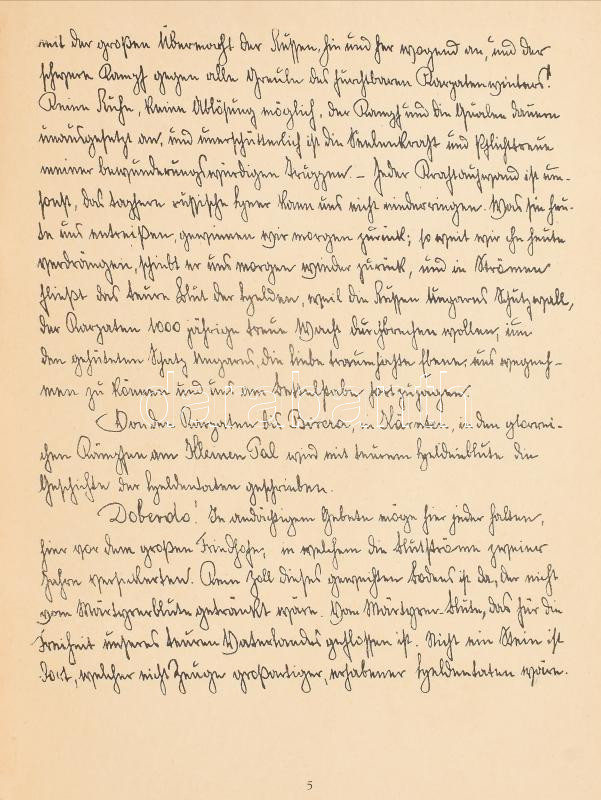 mit der großen Übermacht der Russen, hin und her wogend an, und der
schwere Kampf gegen alle Greueln des furchtbaren Karpatenwinters!
Keine Ruhe, keine Ablösung möglich, der Kampf und die Qualen dauern
unausgesetzt an, und unerschütterlich ist die Seelenkraft und Pflichttreue
meiner bewunderungswürdigen Truppen. – Jeder Kraftaufwand ist um-
sonst, das tapfere russische Heer kann uns nicht niederringen. Was sie heu-
te uns entreißen, gewinnen wir morgen zurück; so weit wir ihn heute
verdrängen, schiebt er uns morgen wieder zurück, und in Strömen
fließt das teure Blut der Helden, weil die Russen Ungarns Schutzwall,
der Karpaten 1000 jährige treue Wacht durchbrechen wollen, um
den gehüteten Schatz Ungarns, die liebe traumhafte Ebene, uns wegneh-
men zu können und uns am Bettelstabe fortzujagen.
Von den Karpaten bis in Kärnten, in den glorrei-
chen Kämpfen am Kleinen Pal wird mit teurem Heldenblute die
Geschichte der Heldentaten geschrieben.
Doberdo! In andächtigem Gebete möge hier jeder halten,
hier vor dem großen Friedhofe, in welchem die Blutströme zweier
Jahre versickerten. Kein Zoll dieses geweihten Bodens ist da, der nicht
vom Märtyrerblute getränkt wäre. Vom Märtyrer-Blute, das für die
Freiheit unseres teuren Vaterlandes geflossen ist. Nicht ein Stein ist
dort, welcher nicht Zeuge großartiger, erhabener Heldentaten wäre.
5
darabanth